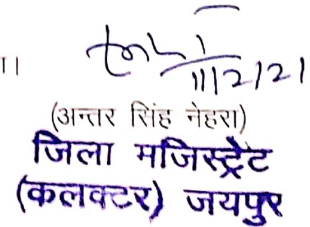 11/2/21
(अन्तर सिंह नेहरा)
जिला मजिस्ट्रेट
(कलक्टर) जयपुर